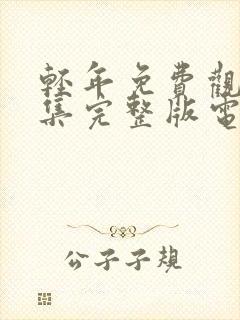 轻年免費觀
集完整版電
公子子規